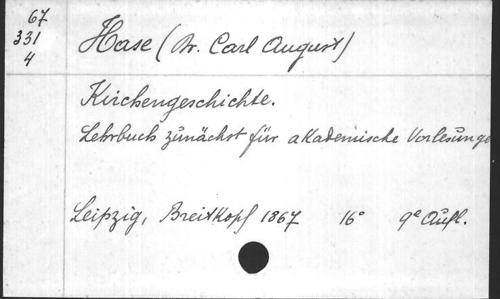 67
331
4
Hase (Dr. Carl August)
Kirchengeschichte.
Lehrbuch zunächst für akademische Vorlesunge
Leipzig, Breitkopf 1867 16° 9e Aufl.